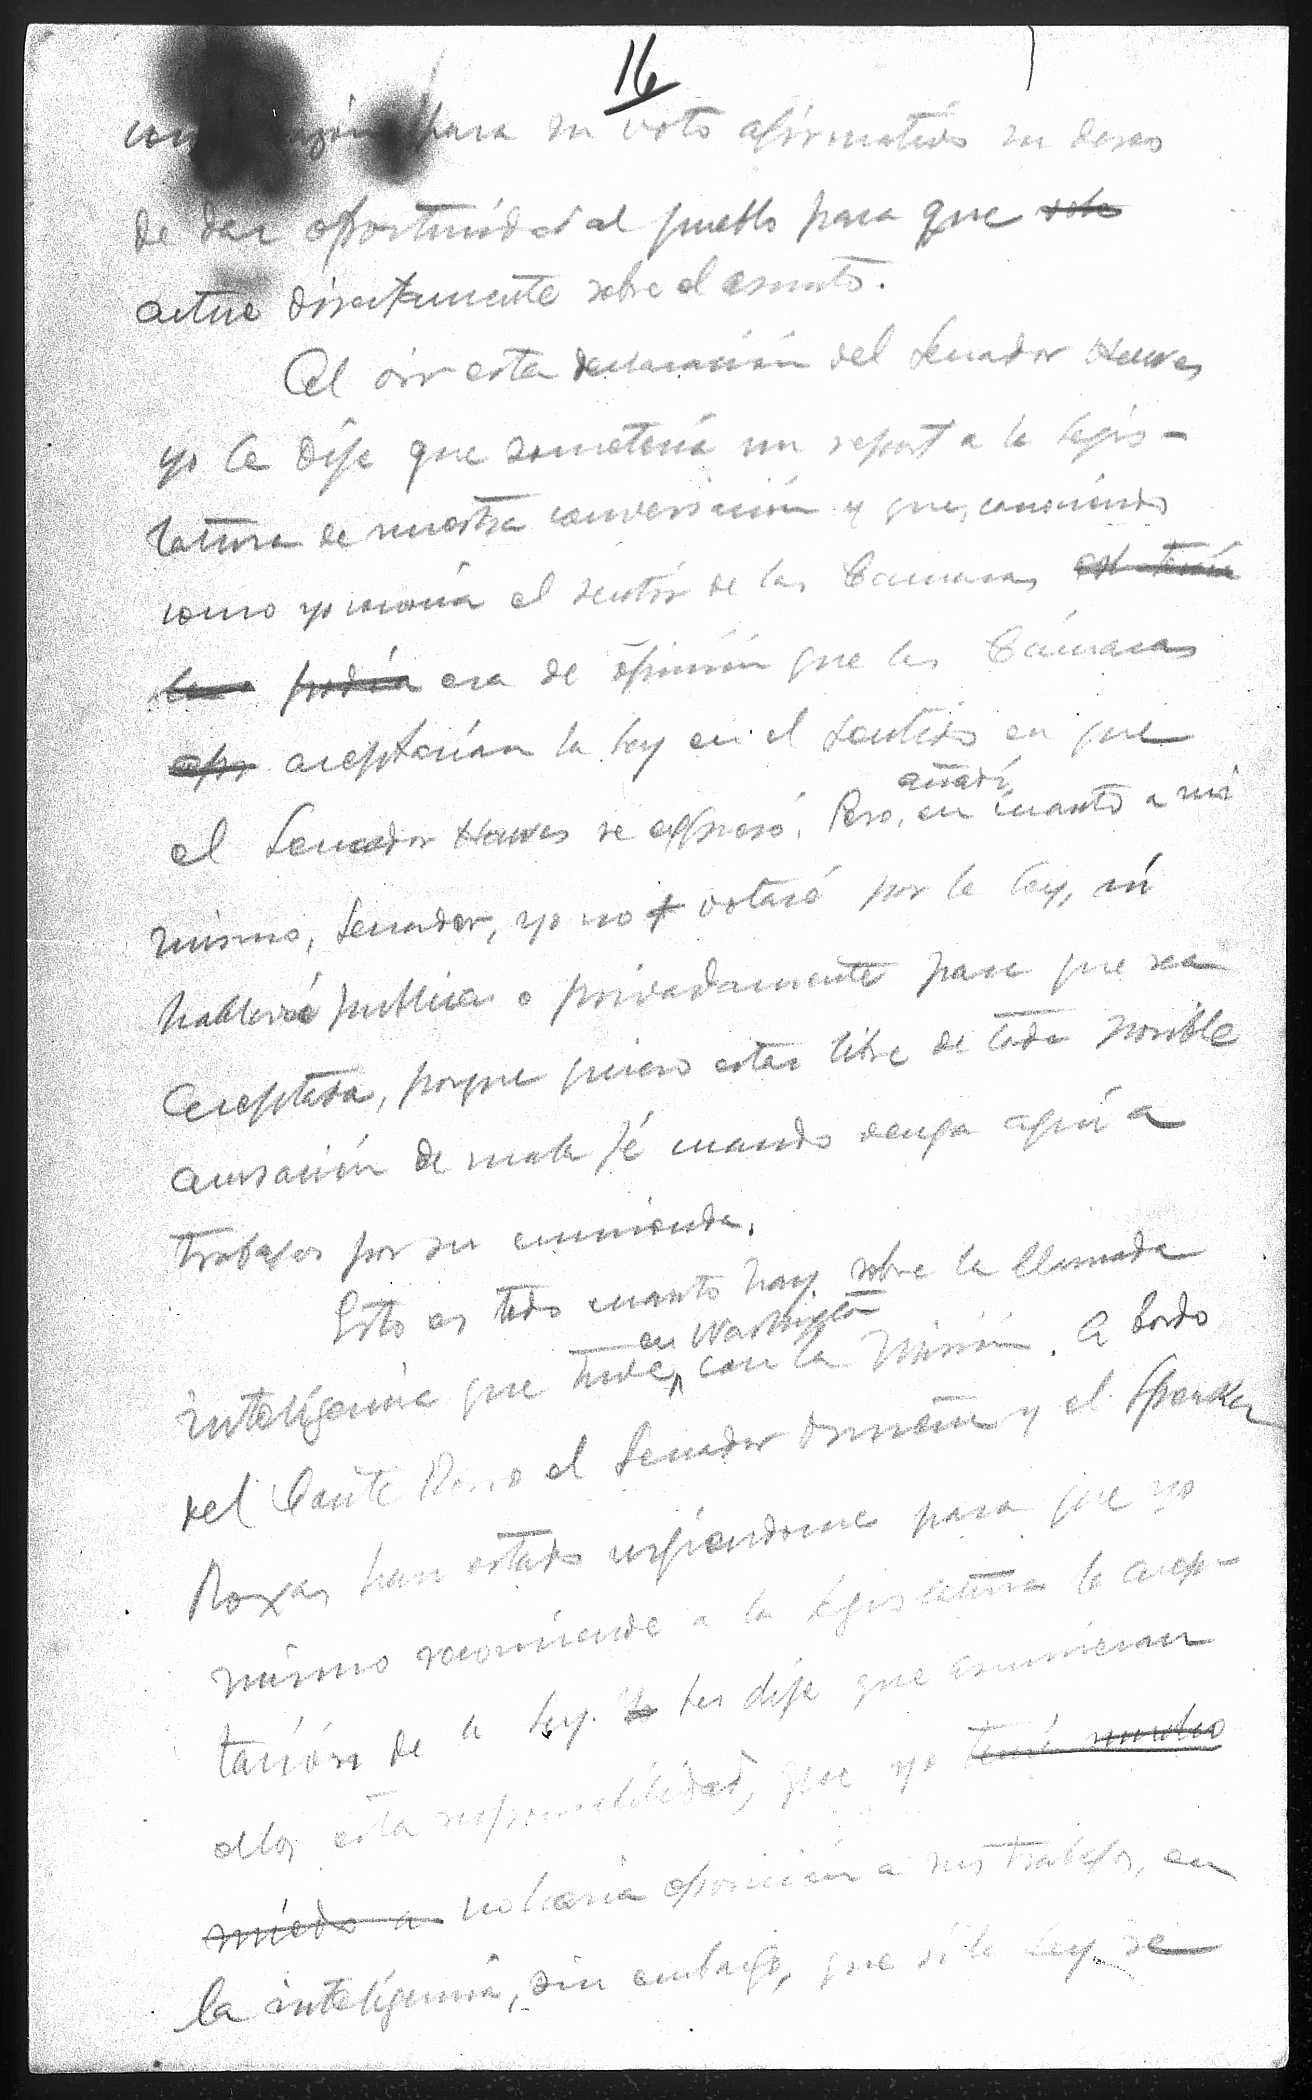 16
como razón para su voto afirmativo su deseo
de dar oportunidad al pueblo para que
actue directamente sobre el asunto.
Al oir esta declaración del Senador Hawes
yo le dije que sometería un report a la Legis-
latura de nuestra conversación y que, conociendo
como yo conocía el sentir de las Camaras
podía era de opinión que las Cámaras
aceptarían la ley en el sentido en que
el Senador Hawes se expresó. Pero, añadí, en cuanto a mi
mismo, Senador, yo no votaré por la ley, ni
hablaré publica o privadamente para que sea
aceptada, porque quiero estar libre de toda posible
acusación de mala fé cuando venga aquí a
trabajar por su enmienda.
Esto es todo cuanto hay sobre la llamada
inteligencia que tuve en Washington con la Misión. A bordo
del Conte Rosso el Senador Osmeña y el Speaker
Roxas han estado urgiendome para que yo
mismo recomiende a la Legislatura la acep-
tación de la ley. Yo les dije que asumieran
ellos esta responsabilidad, que yo tení mucho
miedo a no haría oposición a sus trabajos, en
la inteligencia, sin embargo, que si la ley se